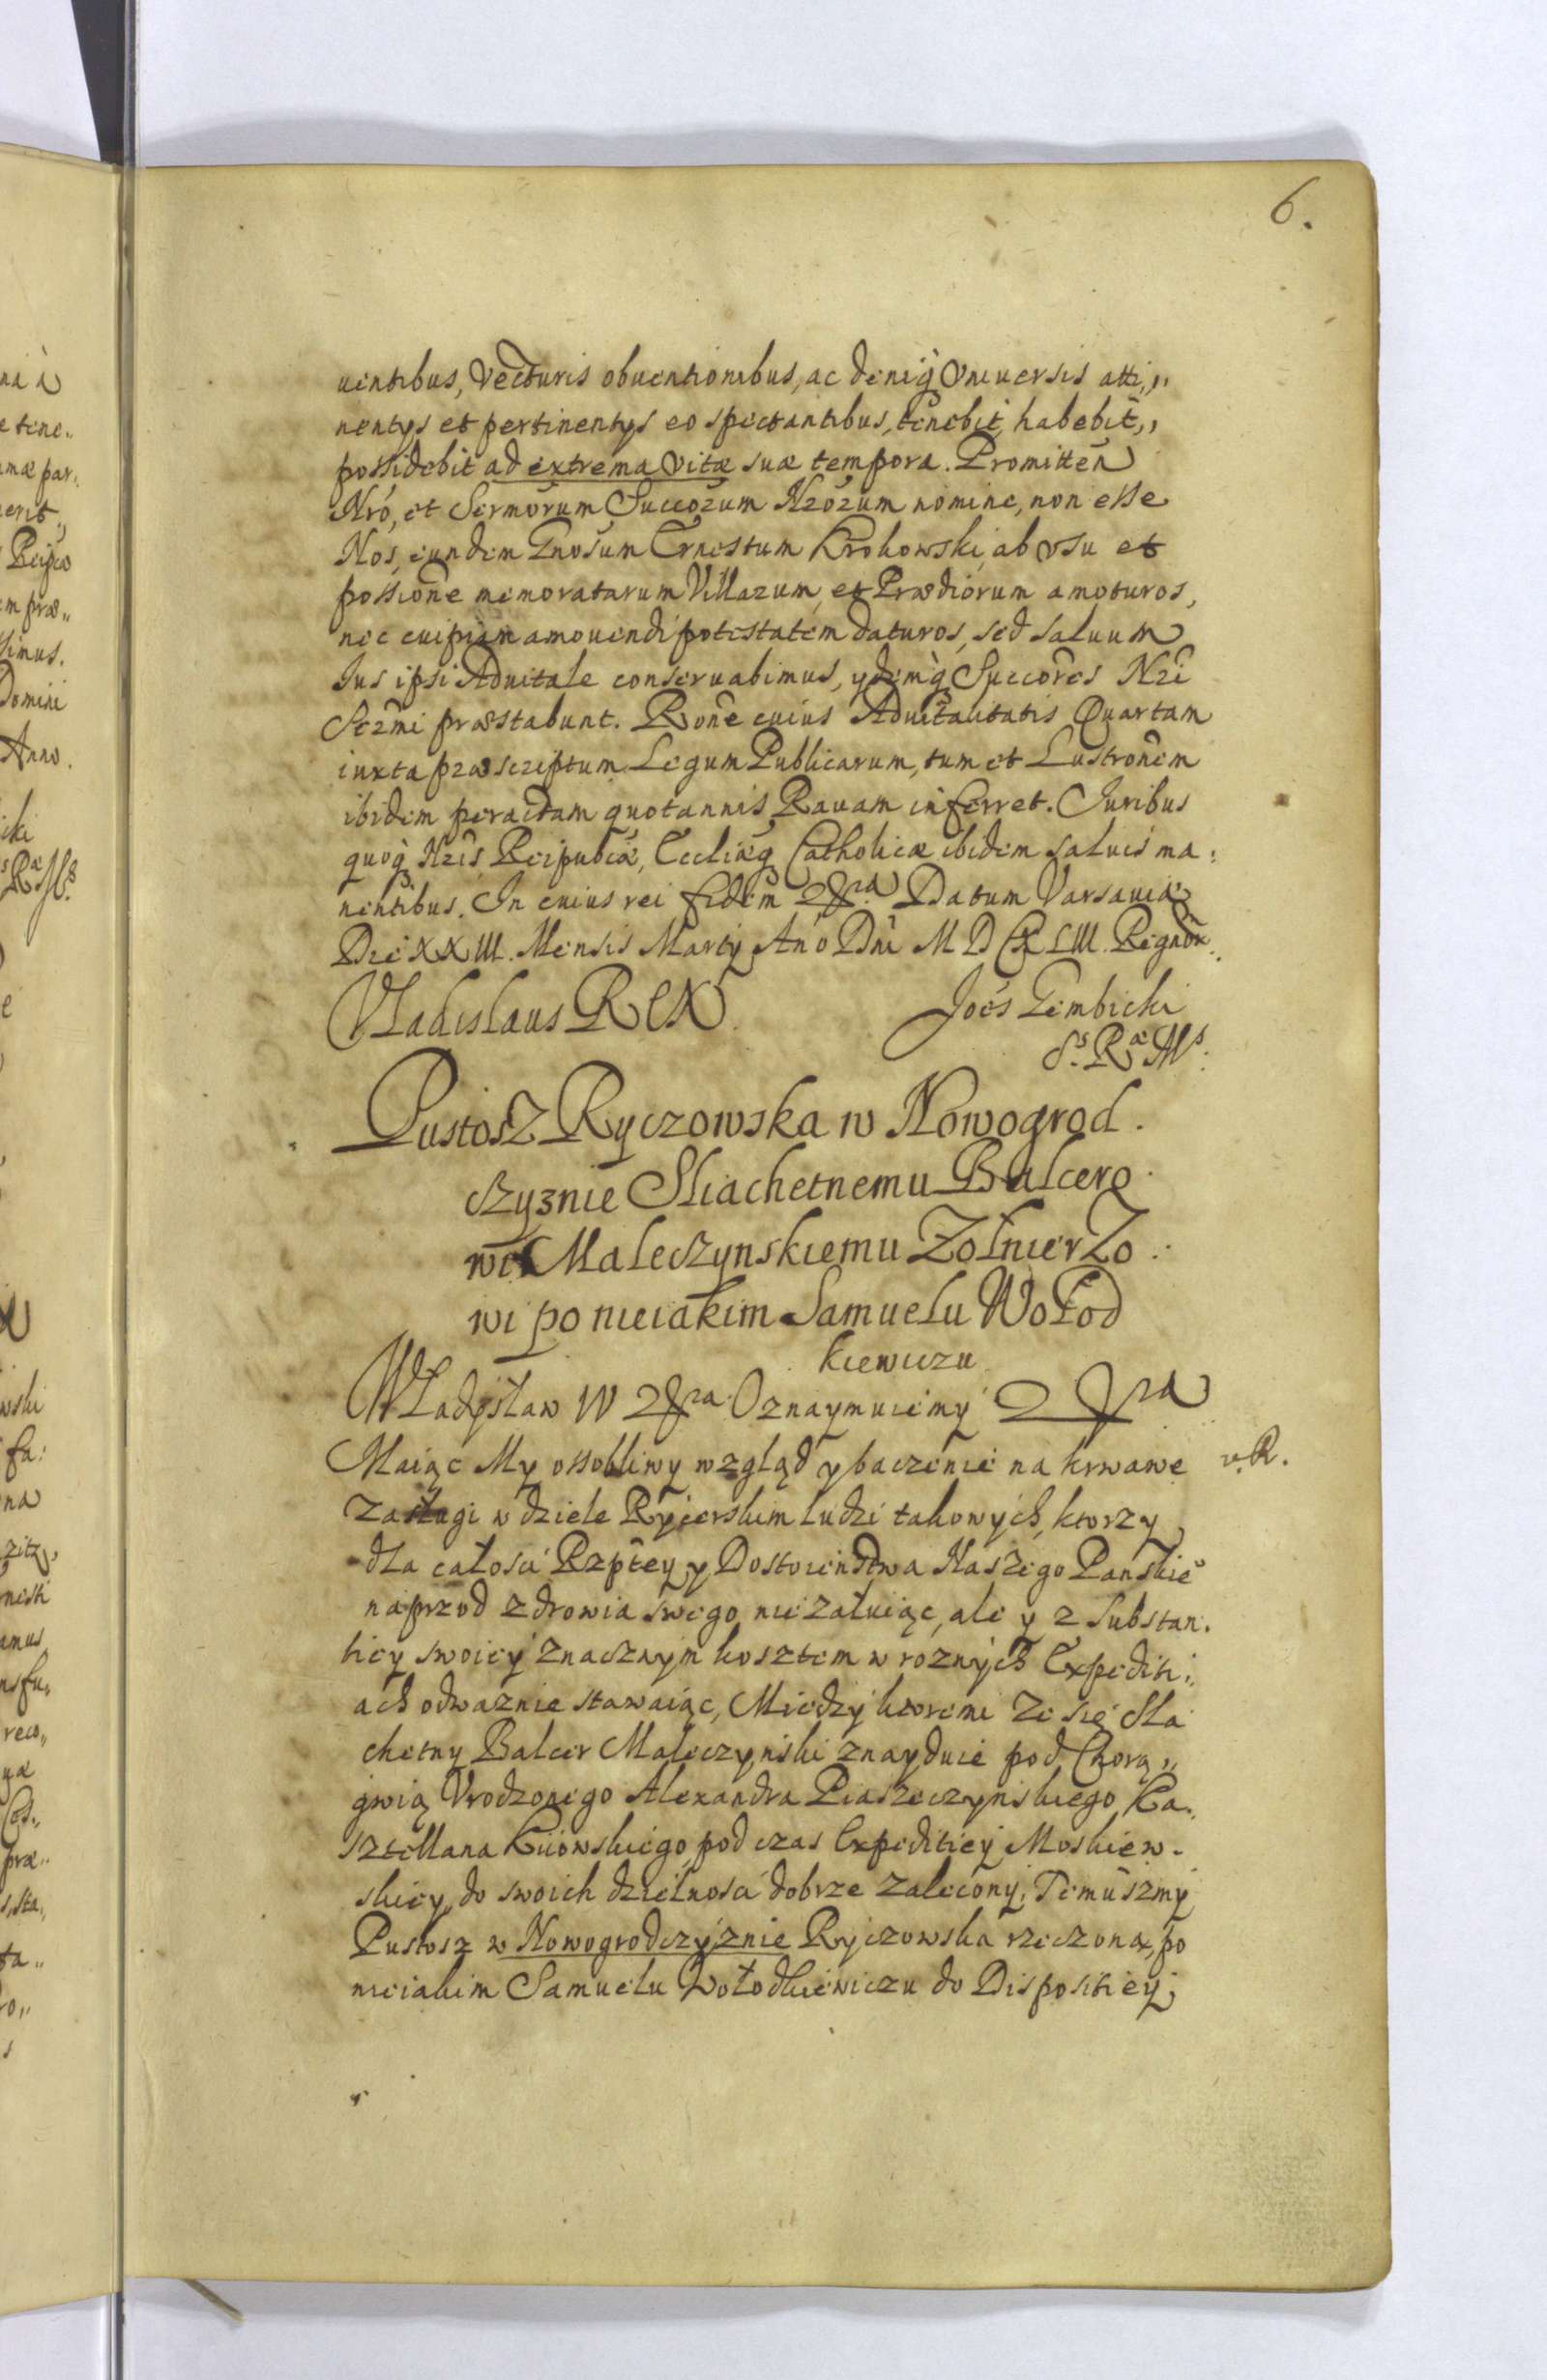 6.
uentibus, Vecturis obuentionibus, ac deniq̀ Vniuersis atti„
nentys et pertinentys eo spectantibus, tenebit, habebit„
possidebit ad extrema Vitæ suæ tempora. Promitteñ
Nró, et Sermórum Succózum Nzózum nomine, non esse
Nos, eundem Gnosum Ernestum Krokowski, ab vsu et
possioñe memoratarum Villazum, et Prædiorum amoturos,
nec cuipiam amouendi potestatem daturos, sed saluum
Ius ipsi Aduitale conseruabimus, ydemq̀ Succores Nzi
Sezmi præstabunt. Rone cuius Aduitalitatis Quartam
iuxta præscriptum Legum Publicarum, tum et Lustronem
ibidem peractam quotannis Rauam inferret. Iuribus
quoq̀ Nzis Reipubcæ, Eccliæq̀ Catholicæ ibidem saluis ma:
nentibus. In cuius rei fidem &ra Datum Varsauiæ
Die XXIII. Mensis Marty Anó Dni M D C XLIII. Regnor.
Vladislaus REX
Joes Gembicki
S.s R.æ M.s
Pustosz Ryczowska w Nowogrod.
czyznie Sliachetnemu Balcero.
wi Maleczynskiemu ZołnierZo.
wi po nieiakim Samuelu Wołod
kiewiczu
Władysław IV &ra Oznaymuiemy &ra
Maiąc My ossobliwy wzgląd y baczenie na krwawe
v. R.
zasługi w dziele Rycerskim ludzi takowych, ktorzy
dla całosci Rzptey y Dostoienstwa Naszego Panskie
naprzod zdrowia swego nie załuiąc, ale y z Substan.
tiey swoiey znacznym kosztem w roznych Expediti:
ach odwaznie stawaiąc, Miedzy ktoremi ze się Sla
chetny Balcer Maleczynski znayduie pod Chorą„
gwią Vrodzonego Alexandra Piaseczynskiego Ka.
sztellana Kiiowskiego, pod czas Expeditiey Moskiew.
skiey, do swoich dzielnosci dobrze zalecony, Temuszmy
Pustosz w Nowogrodczyznie Ryczowska rzeczona, po
nieiakim Samuelu Wołodkiewiczu do Dispositiey